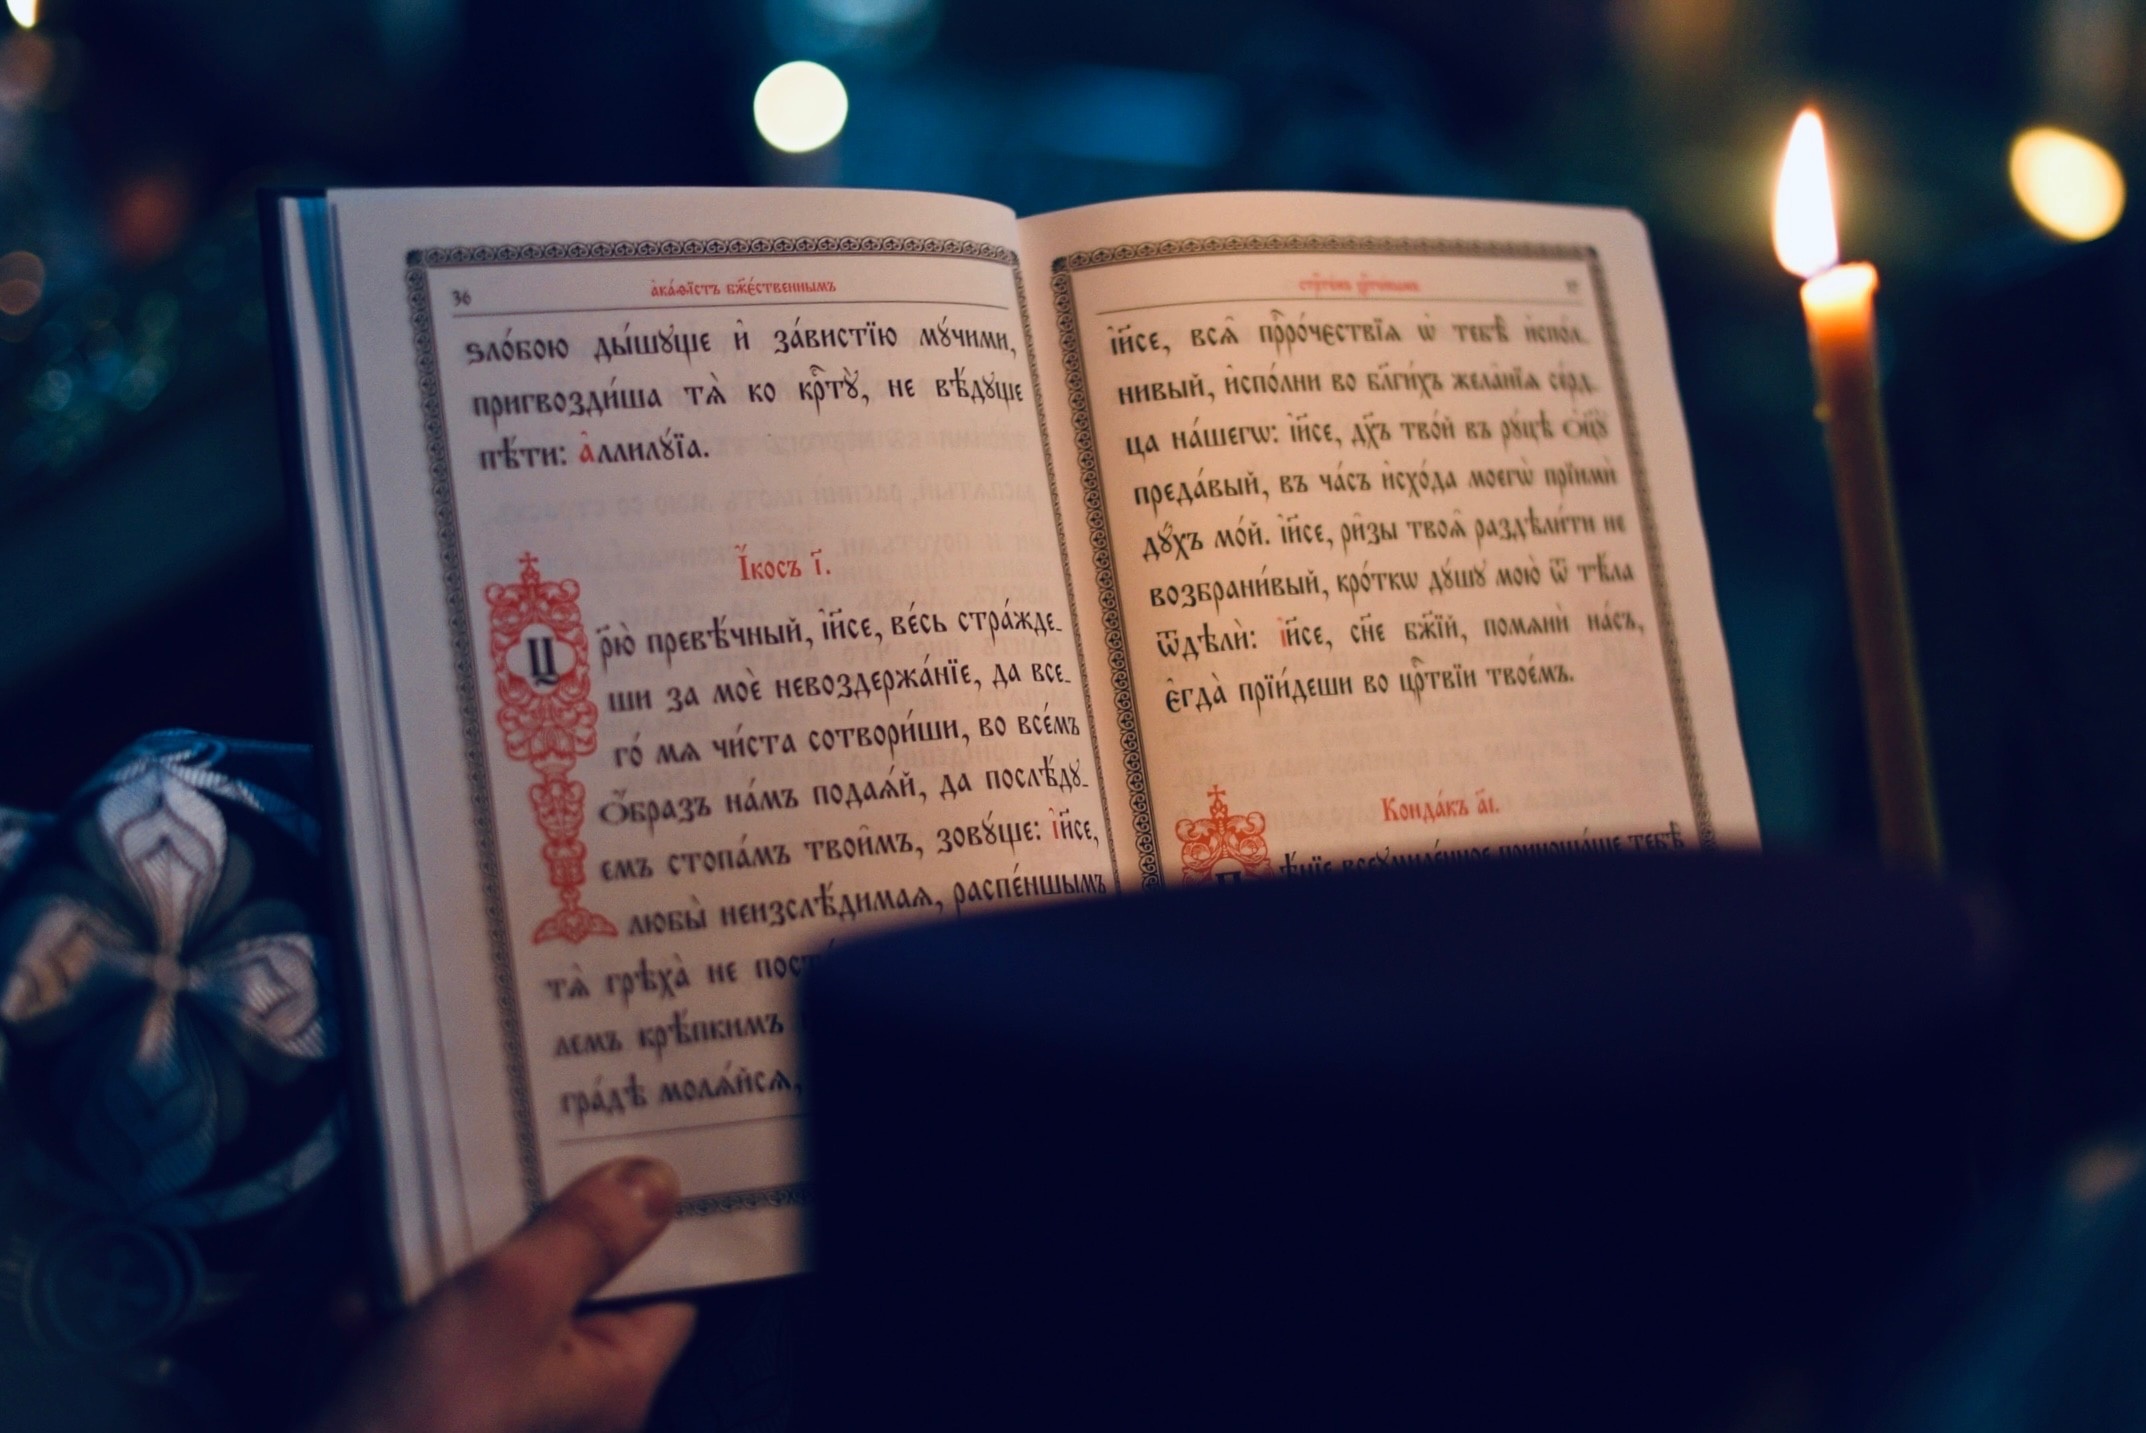 36
а҆ка́ѳїстъ бж҃е́ственнымъ
ѕло́бою ды́шꙋще и҆ за́вистїю мꙋ́чими,
пригвозди́ша тѧ̀ ко крⷭ҇тꙋ̀, не вѣ́дꙋще
пѣ́ти: а҆ллилꙋ́їа.
І҆́косъ і҃.
Цр҃ю̀ превѣ́чный, і҆и҃се, ве́сь стра́жде_
ши за моѐ невоздержа́нїе, да все_
го́ мѧ чи́ста сотвори́ши, во все́мъ
Ѻ҆́бразъ на́мъ подаѧ́й, да послѣ́дꙋ_
емъ стопа́мъ твои̑мъ, зовꙋ́ще: і҆и҃се,
любы̀ неизслѣ́димаѧ, распе́ншымъ
тѧ̀ грѣха̀ не
лемъ крѣ́пкимъ
гра́дѣ молѧ́йсѧ,
стрⷭ҇те́мъ хрⷭ҇то́вымъ
і҆и҃се, всѧ̑ прⷪ҇ро́чествїѧ ѡ҆ тебѣ̀ и҆спо́л_
нивый, и҆спо́лни во бл҃ги́хъ жела̑нїѧ се́рд_
ца на́шегѡ: і҆и҃се, дх҃ъ тво́й въ рꙋ́цѣ ѻ҆ц҃ꙋ̀
преда́вый, въ ча́съ и҆схо́да моегѡ̀ прїимѝ
дꙋ́хъ мо́й. і҆и҃се, ри̑зы твоѧ̑ раздѣли́ти не
возбрани́вый, кро́ткѡ дꙋ́шꙋ мою̀ ѿ тѣ́ла
ѿдѣлѝ: і҆и҃се, сн҃е бж҃їй, помѧнѝ на́съ,
є҆гда̀ прїи́деши во црⷭ҇твїи твое́мъ.
Конда́къ а҃і.
Пѣ́нїе всеꙋмиле́нное приноша́ще тебѣ̀